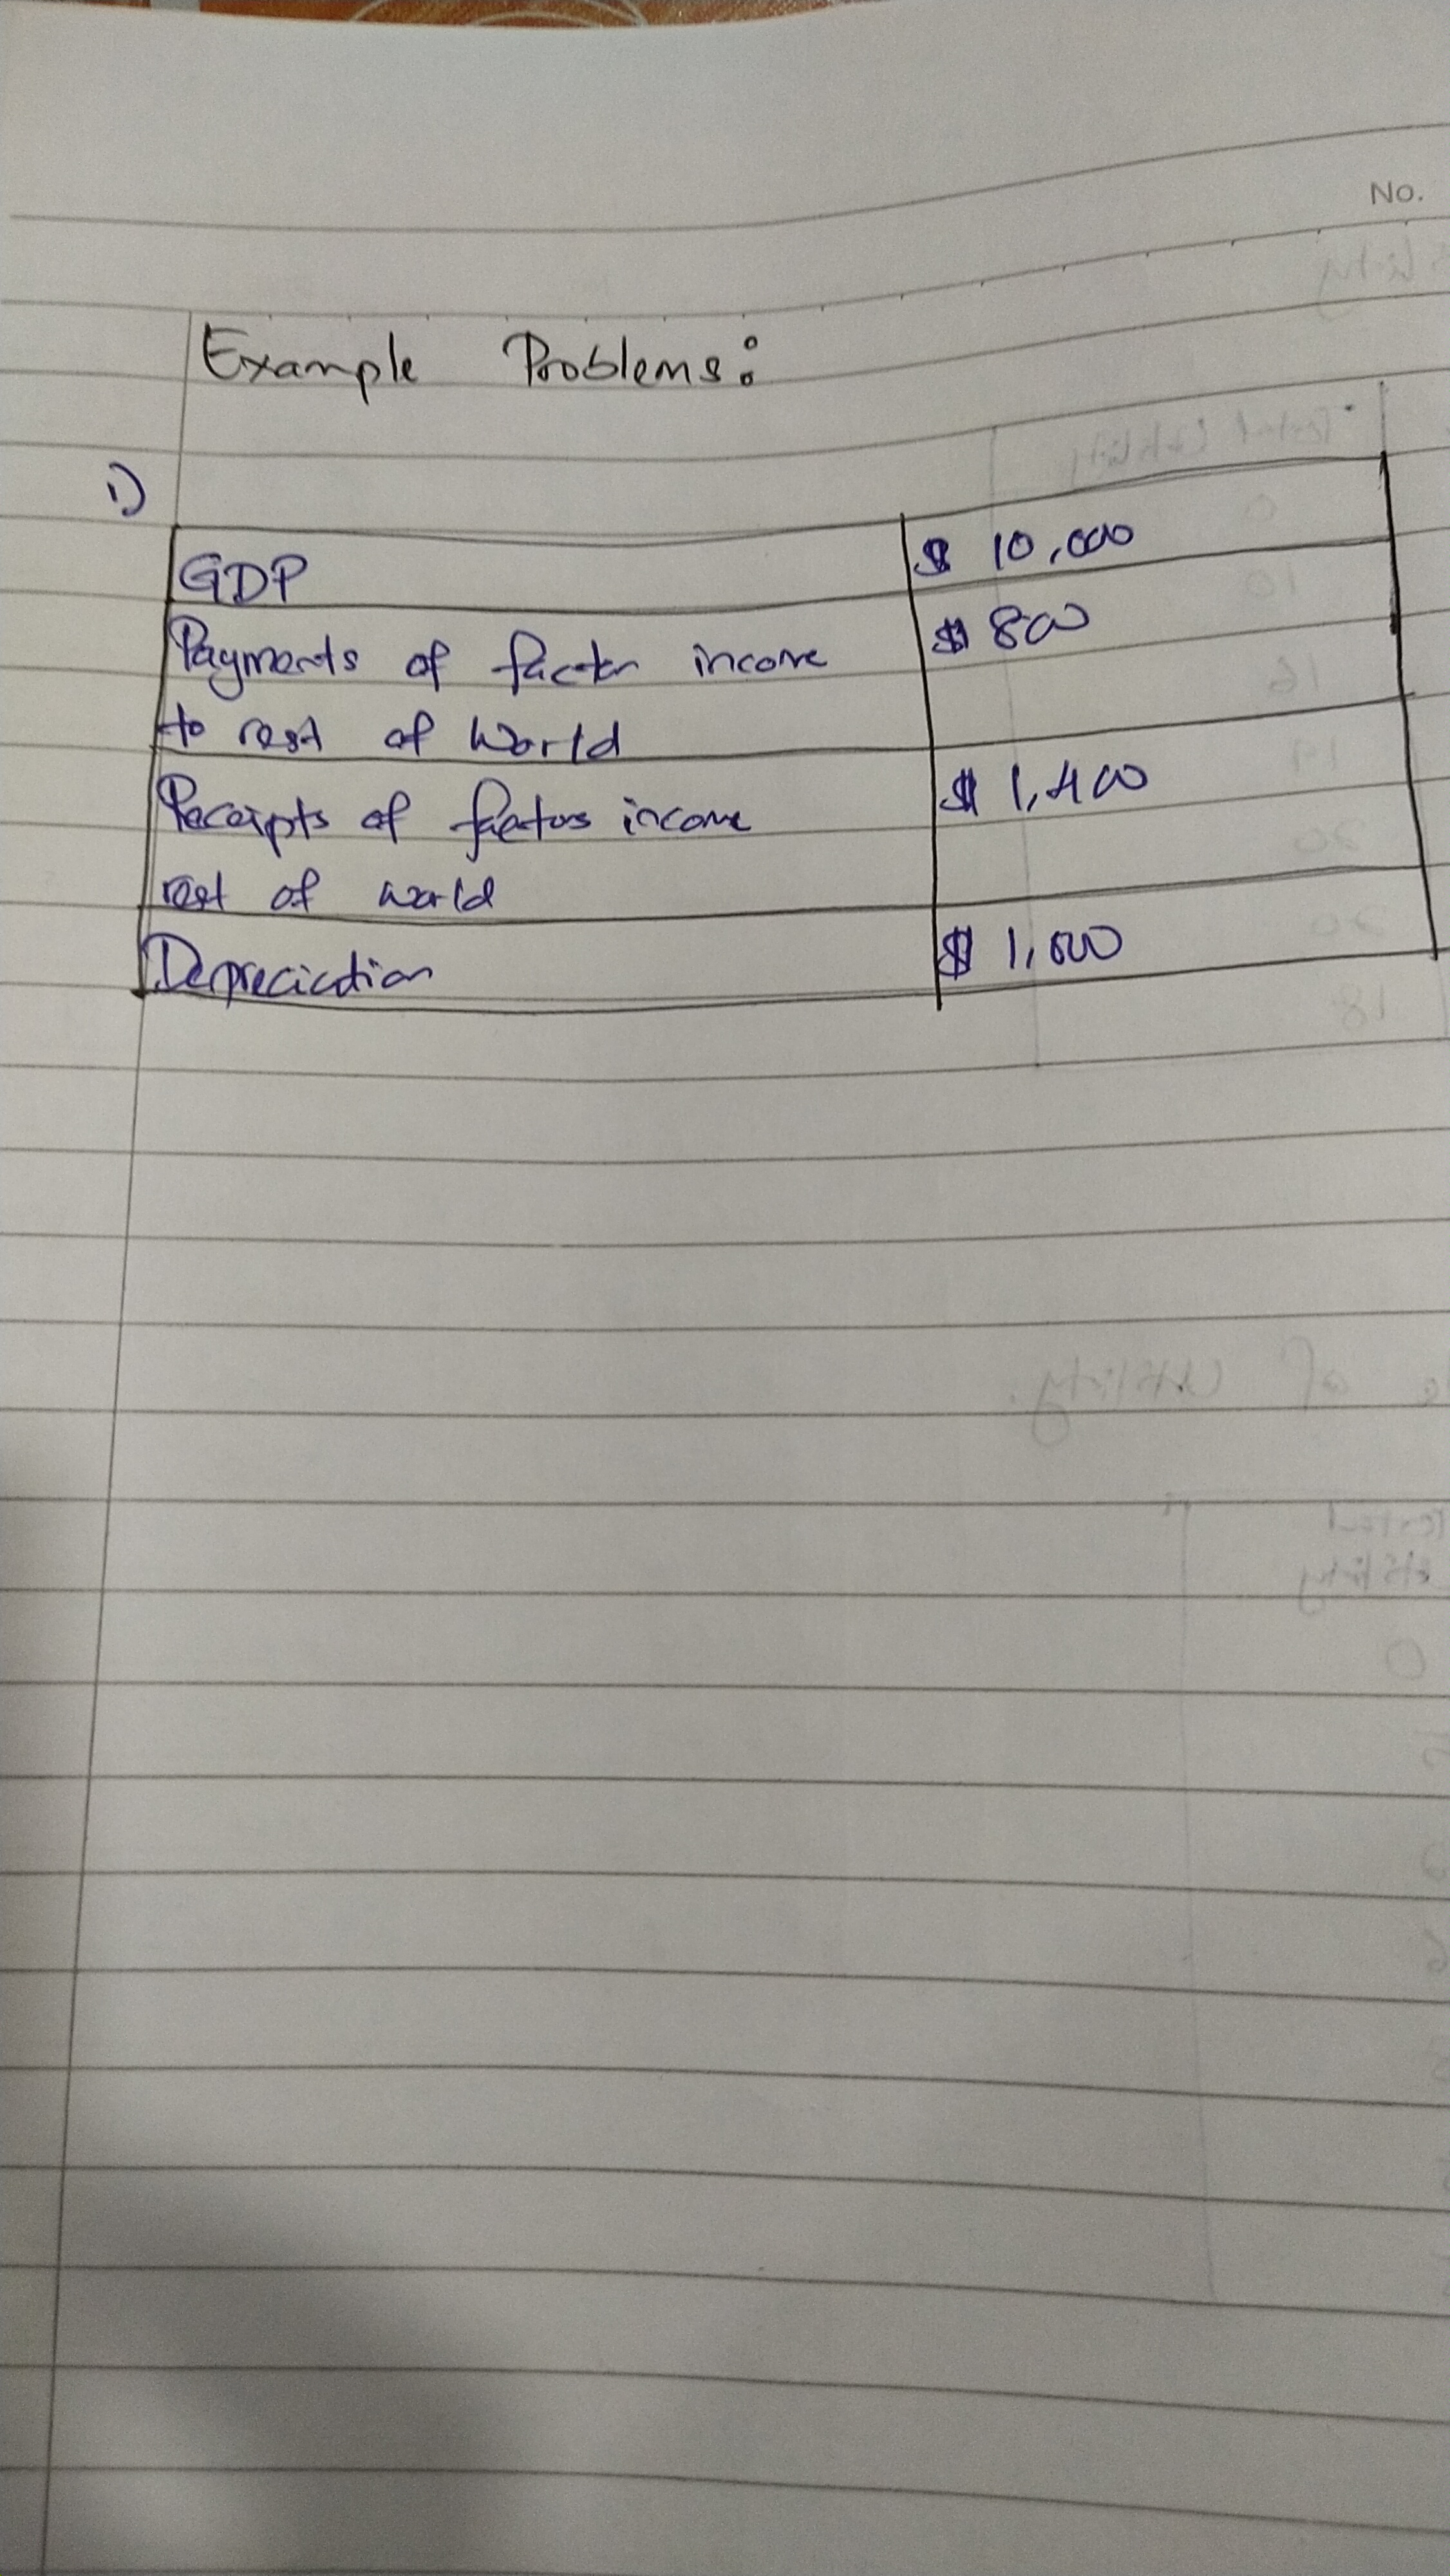 No.
Example Problems:
1)
GDP $ 10,000
Payments of factor income $ 800
to rest of World
Receipts of factors income $ 1,400
rest of world
Depreciation